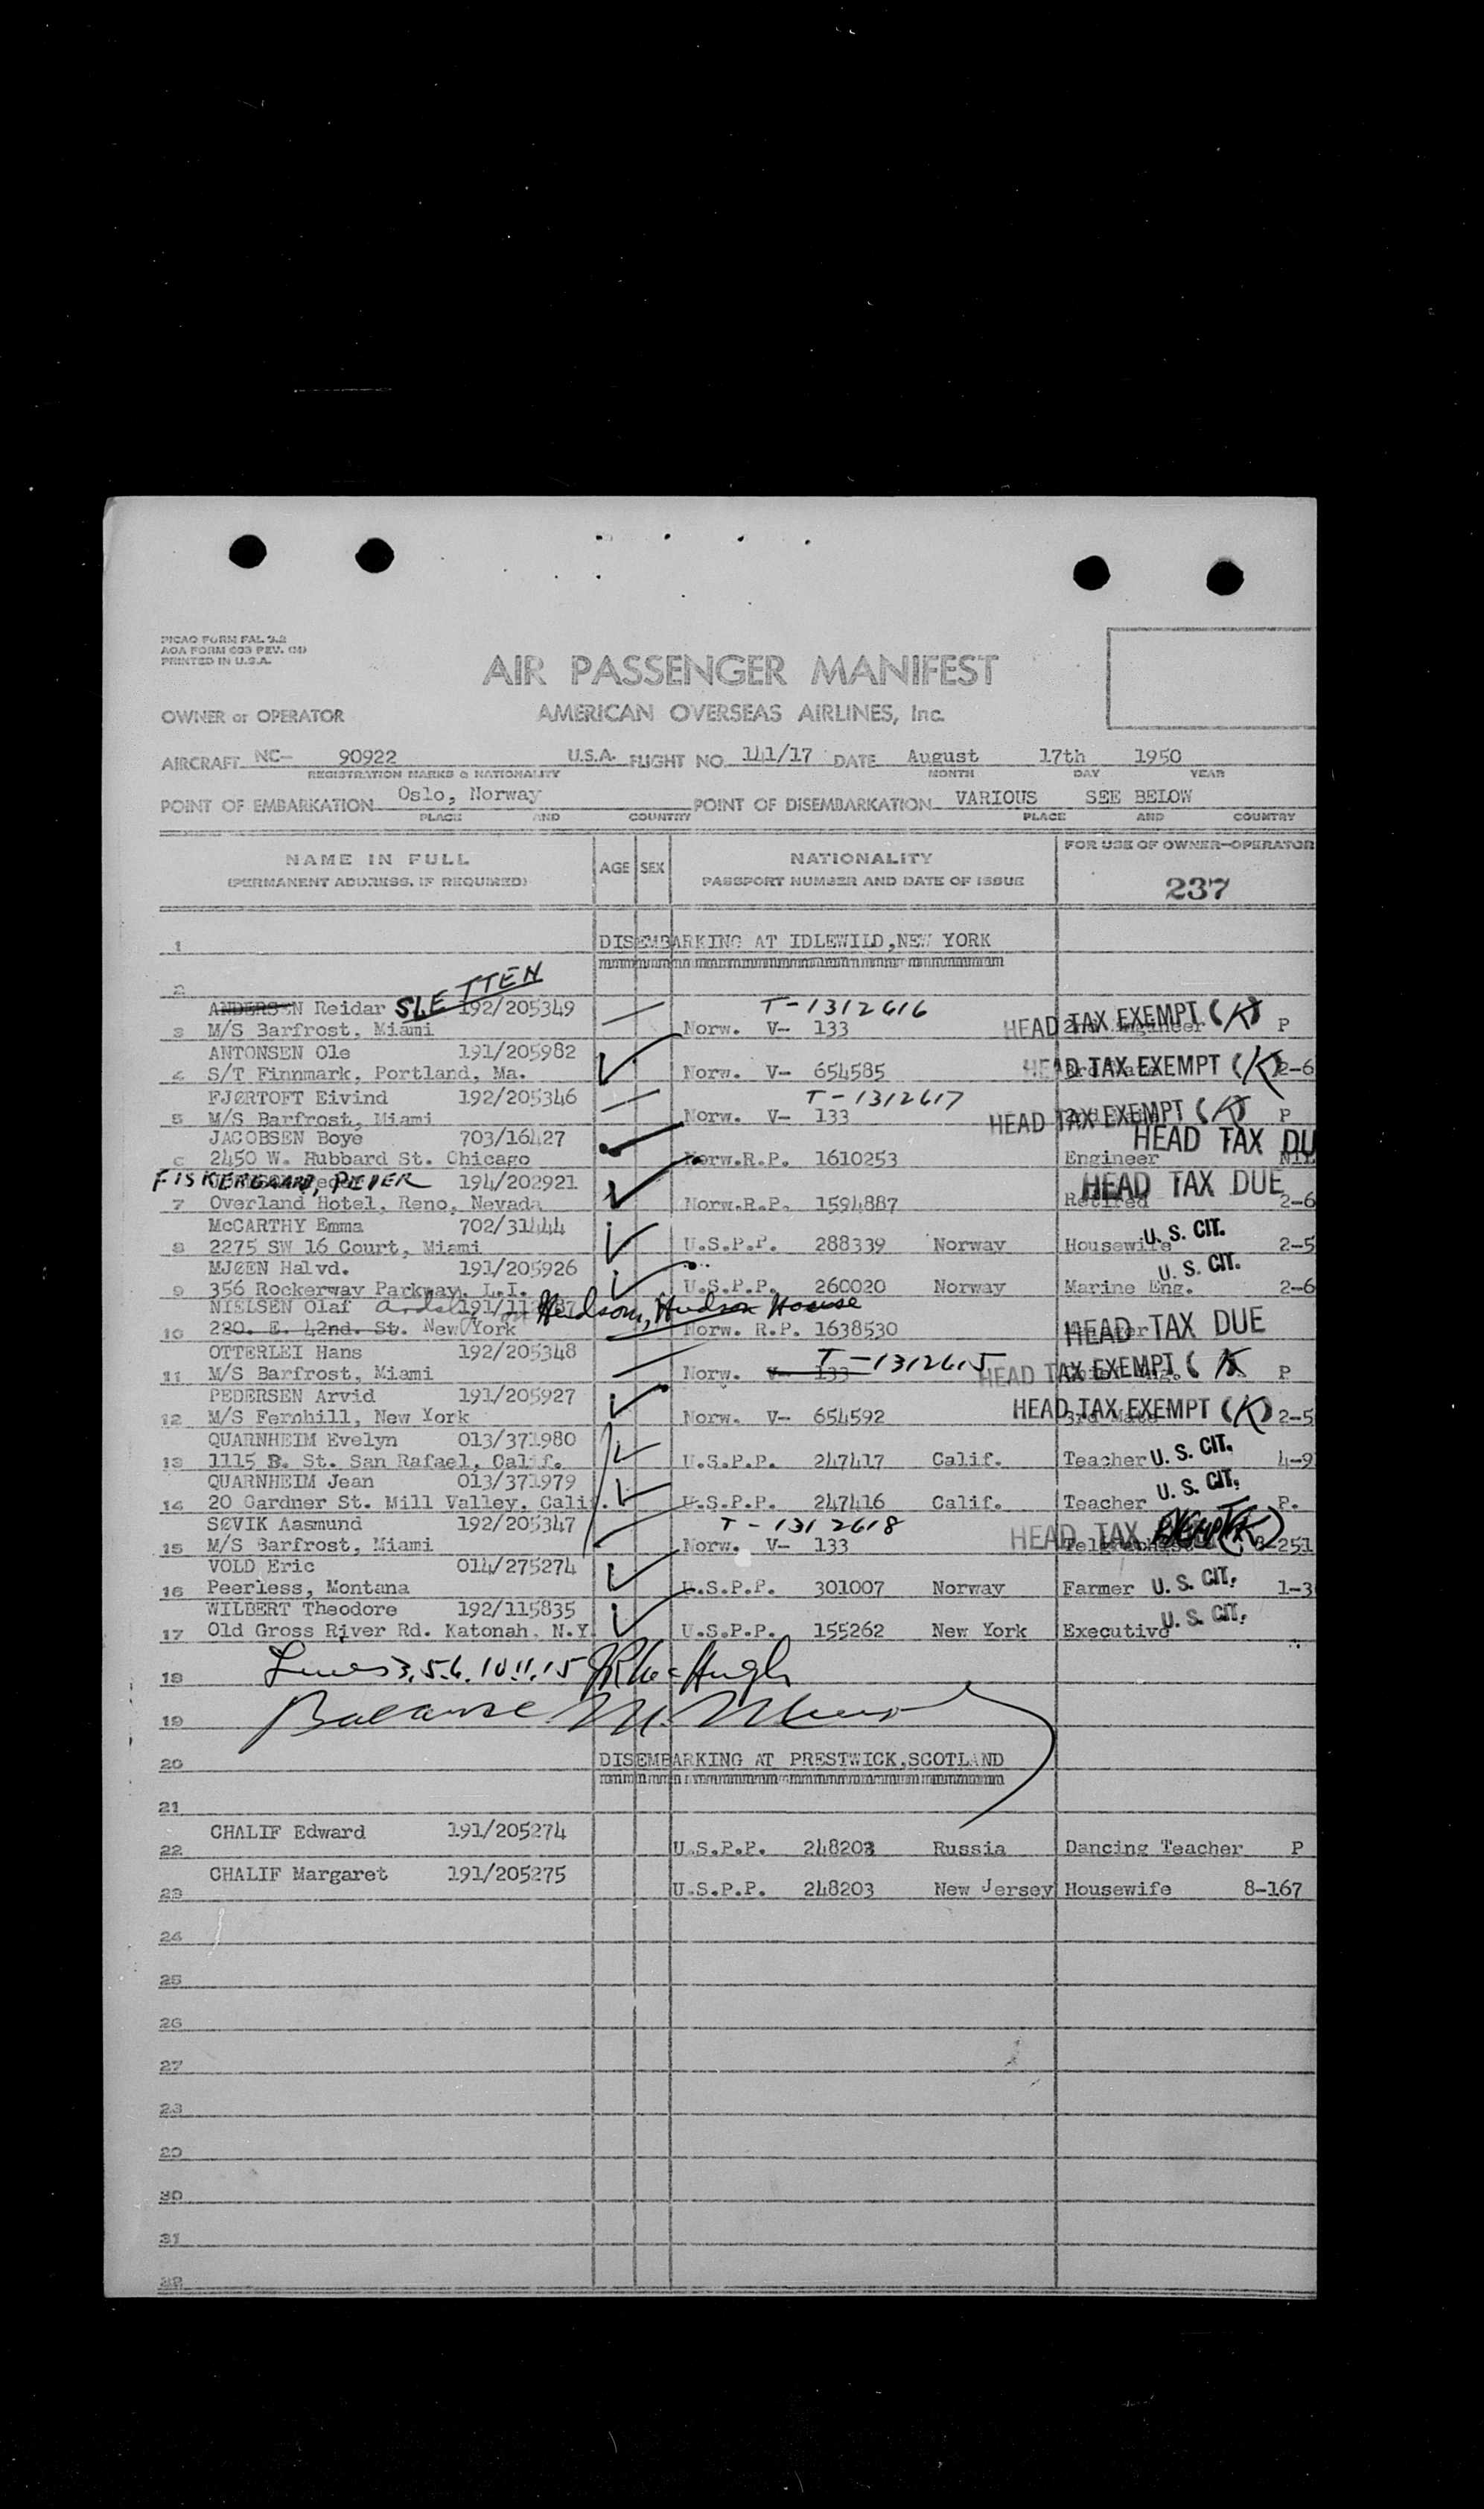 PICAO FORM FAL 2.2
AOA FORM 603 REV. (M)
PRINTED IN U.S.A.
AIR PASSENGER MANIFEST
OWNER or OPERATOR AMERICAN OVERSEAS AIRLINES, Inc.
AIRCRAFT NC- 90922 U.S.A. FLIGHT NO. 141/17 DATE August 17th 1950
REGISTRATION MARKS & NATIONALITY MONTH DAY YEAR
POINT OF EMBARKATION Oslo, Norway POINT OF DISEMBARKATION VARIOUS SEE BELOW
PLACE AND COUNTRY PLACE AND COUNTRY
NAME IN FULL AGE SEX NATIONALITY FOR USE OF OWNER-OPERATOR
(PERMANENT ADDRESS, IF REQUIRED) PASSPORT NUMBER AND DATE OF ISSUE 237
1 DISEMBARKING AT IDLEWILD,NEW YORK
2
ANDERSEN Reidar SLETTEN 192/205349 T-1312616
3 M/S Barfrost, Miami Norw. V- 133 2nd Engineer HEAD TAX EXEMPT (K) P
ANTONSEN Ole 191/205982
4 S/T Finnmark, Portland, Ma. Norw. V- 654585 HEAD TAX EXEMPT (K) 2-6
FJØRTOFT Eivind 192/205346 T-1312617
5 M/S Barfrost, Miami Norw. V- 133 HEAD TAX EXEMPT (K) P
JACOBSEN Boye 703/16427 HEAD TAX DU
6 2450 W. Hubbard St. Chicago Norw.R.P. 1610253 Engineer NIL
FISKERGAARD, PEDER 194/202921 HEAD TAX DUE
7 Overland Hotel, Reno, Nevada Norw.R.P. 1594887 Retired 2-6
McCARTHY Emma 702/31444
8 2275 SW 16 Court, Miami U.S.P.P. 288339 Norway Housewife U. S. CIT. 2-5
MJØEN Halvd. 191/205926 U. S. CIT.
9 356 Rockerway Parkway, L.I. U.S.P.P. 260020 Norway Marine Eng. 2-6
NIELSEN Olaf Hudson, Hudson House
10 220. E. 42nd. St. New York Norw. R.P. 1638530 HEAD TAX DUE
OTTERLEI Hans 192/205348 T-1312615
11 M/S Barfrost, Miami Norw. V- 133 HEAD TAX EXEMPT (K P
PEDERSEN Arvid 191/205927
12 M/S Fernhill, New York Norw. V- 654592 3rd Mate HEAD TAX EXEMPT (K) 2-5
QUARNHEIM Evelyn 013/371980
13 1115 B. St. San Rafael, Calif. U.S.P.P. 247417 Calif. Teacher U. S. CIT. 4-9
QUARNHEIM Jean 013/371979 U. S. CIT.
14 20 Gardner St. Mill Valley, Calif. U.S.P.P. 247416 Calif. Teacher P.
SØVIK Aasmund 192/205347 T-1312618
15 M/S Barfrost, Miami Norw. V- 133 HEAD TAX EXEMPT (K) 251
VOLD Eric 014/275274
16 Peerless, Montana U.S.P.P. 301007 Norway Farmer U. S. CIT. 1-3
WILBERT Theodore 192/115835
17 Old Gross River Rd. Katonah, N.Y. U.S.P.P. 155262 New York Executive U. S. CIT.
18 Lines 3.5.6.10.11.15
19 Balance
20 DISEMBARKING AT PRESTWICK,SCOTLAND
21
CHALIF Edward 191/205274
22 U.S.P.P. 248203 Russia Dancing Teacher P
CHALIF Margaret 191/205275
23 U.S.P.P. 248203 New Jersey Housewife 8-167
24
25
26
27
28
29
30
31
32